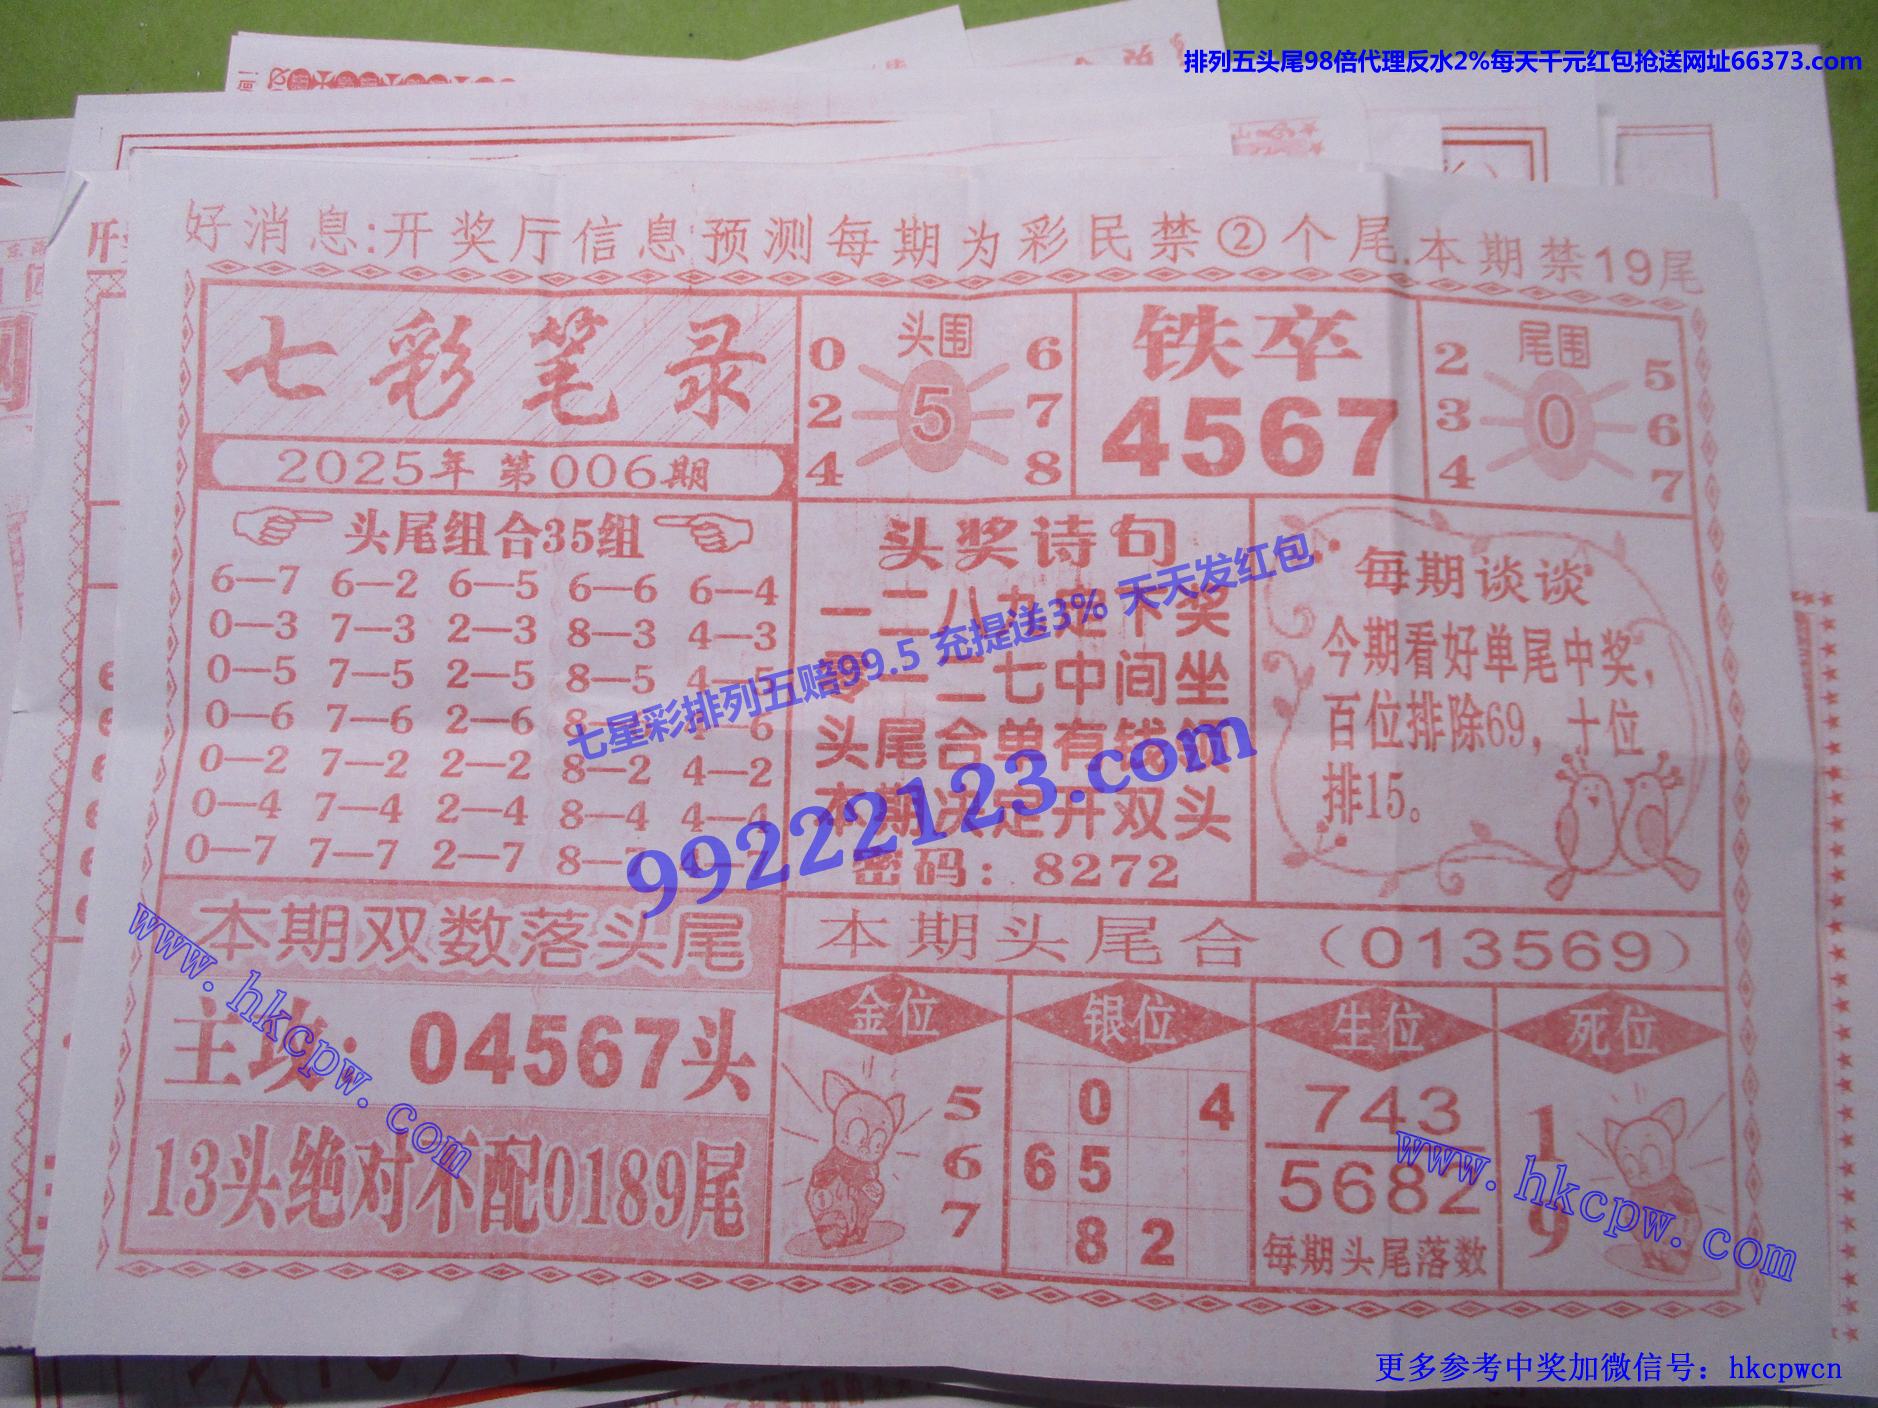 排列五头尾98倍代理反水2%每天千元红包抢送网址66373.com
好消息:开奖厅信息预测每期为彩民禁②个尾.本期禁19尾
七彩笔录
2025年 第006期
头围
0 6
2 5 7
4 8
铁卒
4567
尾围
2 5
3 0 6
4 7
头尾组合35组
6—7 6—2 6—5 6—6 6—4
0—3 7—3 2—3 8—3 4—3
0—5 7—5 2—5 8—5 4—5
0—6 7—6 2—6 8— —6
0—2 7—2 2—2 8—2 4—2
0—4 7—4 2—4 8—4 4—4
0—7 7—7 2—7 8—7 4—7
头奖诗句
一二八九 下奖
二七中间坐
头尾合单有钱
本期决定开双头
密码：8272
每期谈谈
今期看好单尾中奖，
百位排除69，十位
排15。
七星彩排列五赔99.5 充提送3% 天天发红包
99222123.com
本期双数落头尾
主攻：04567头
13头绝对不配0189尾
本期头尾合（013569）
金位
5
6
7
银位
0 4
6 5
8 2
生位
743
5682
每期头尾落数
死位
1
9
www.hkcpw.com
www.hkcpw.com
更多参考中奖加微信号：hkcpwcn